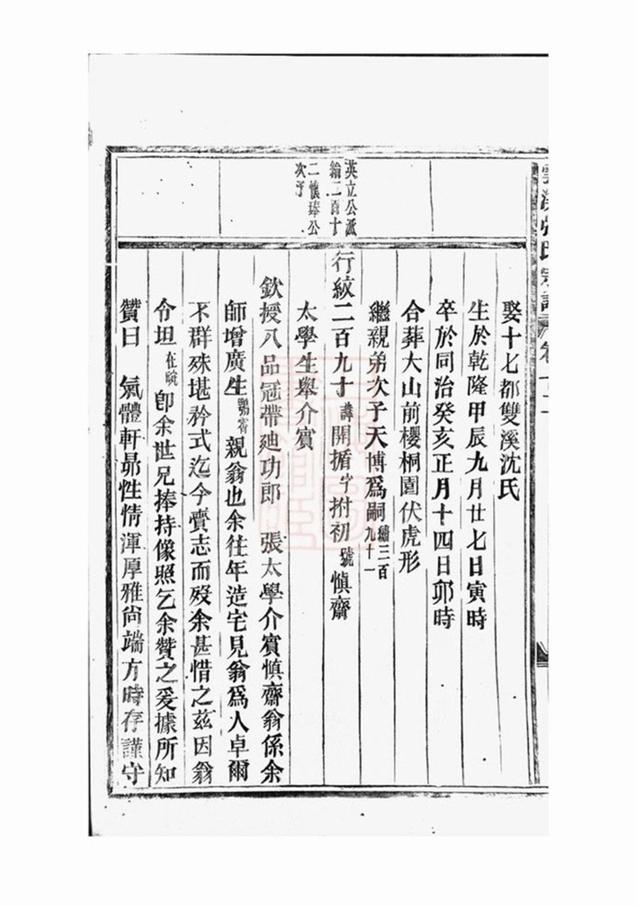 娶十七都雙溪沈氏
生於乾隆甲辰九月廿七日寅時
卒於同治癸亥正月十四日卯時
合葬大山前櫻桐園伏虎形
繼親弟次子天博爲嗣 行繡三百九十一
英立公派
繪二百十
二懷琫公
次子
行紋二百九十 諱開揗字拊初號慎齋
太學生舉介賓
欽授八品冠帶廸功郎 張太學介賓慎齋翁係余
師增廣生 親翁也余往年造宅見翁爲人卓爾
不群殊堪矜式迄今賫志而歿余甚惜之茲因翁
令坦 在 卽余世兄捧持像照乞余贊之爰據所知
贊曰 氣體軒昻性情渾厚雅尙端方時存謹守